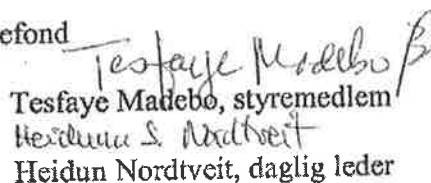 efond
Tesfaye Madebo
Tesfaye Madebo, styremedlem
Heidunn S. Nordtveit
Heidun Nordtveit, daglig leder